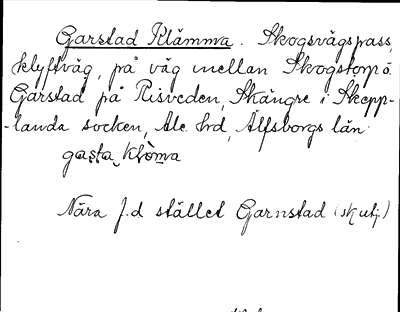 Garstad Klämma. Skogsvägspass,
klyftväg, på väg mellan Skogstorp o.
Garstad på Risveden, Skångre i Skepp-
-landa socken, Ale hrd, Älfsborgs län.
gasta klòma
Nära f.d stället Garnstad (sk utj)